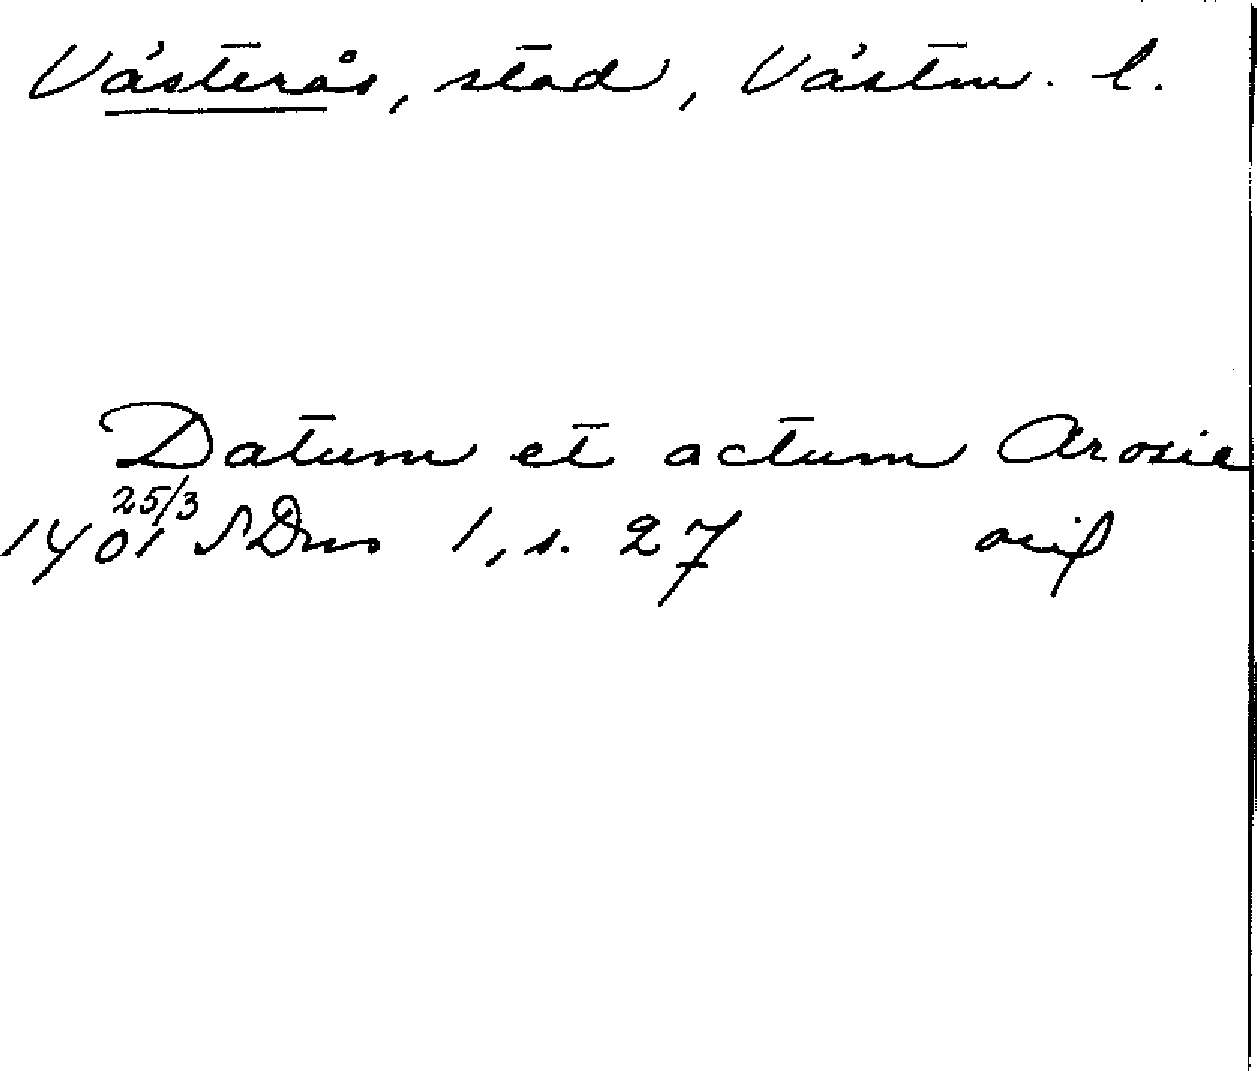 Västerås, stad, Västm. l.
Datum et actum Arosie
25/3
1401 SDns 1, s. 27 orig